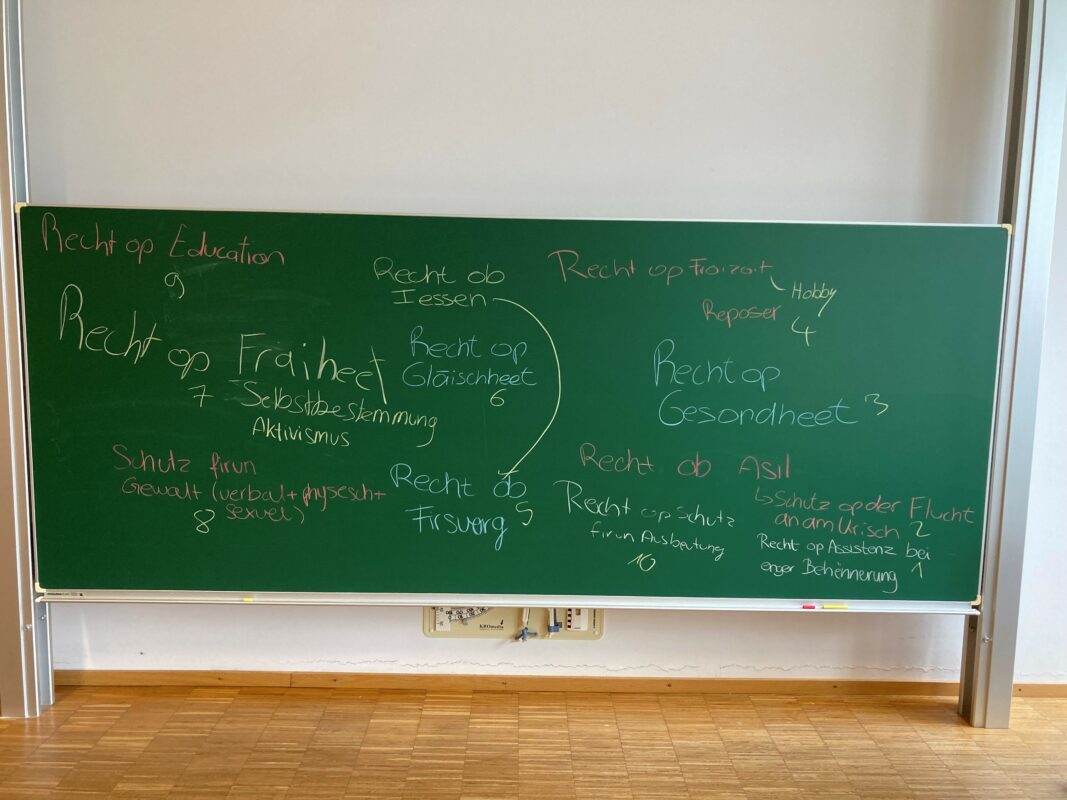 Recht op Education
9
Recht op Fraiheet
7 Selbstbestemmung
Aktivismus
Schutz firun
Gewalt (verbal + physesch +
8 sexuel)
Recht ob
Iessen
Recht op
Gläischheet
6
Recht ob
Firsuerg 5
Recht op Fraizait
Hobby
Reposer 4
Recht op
Gesondheet 3
Recht ob Asil
↳ Schutz op der Flucht
an am Krisch 2
Recht op Schutz
firun Ausbeutung
10
Recht op Assistenz bei
enger Behënnerung 1